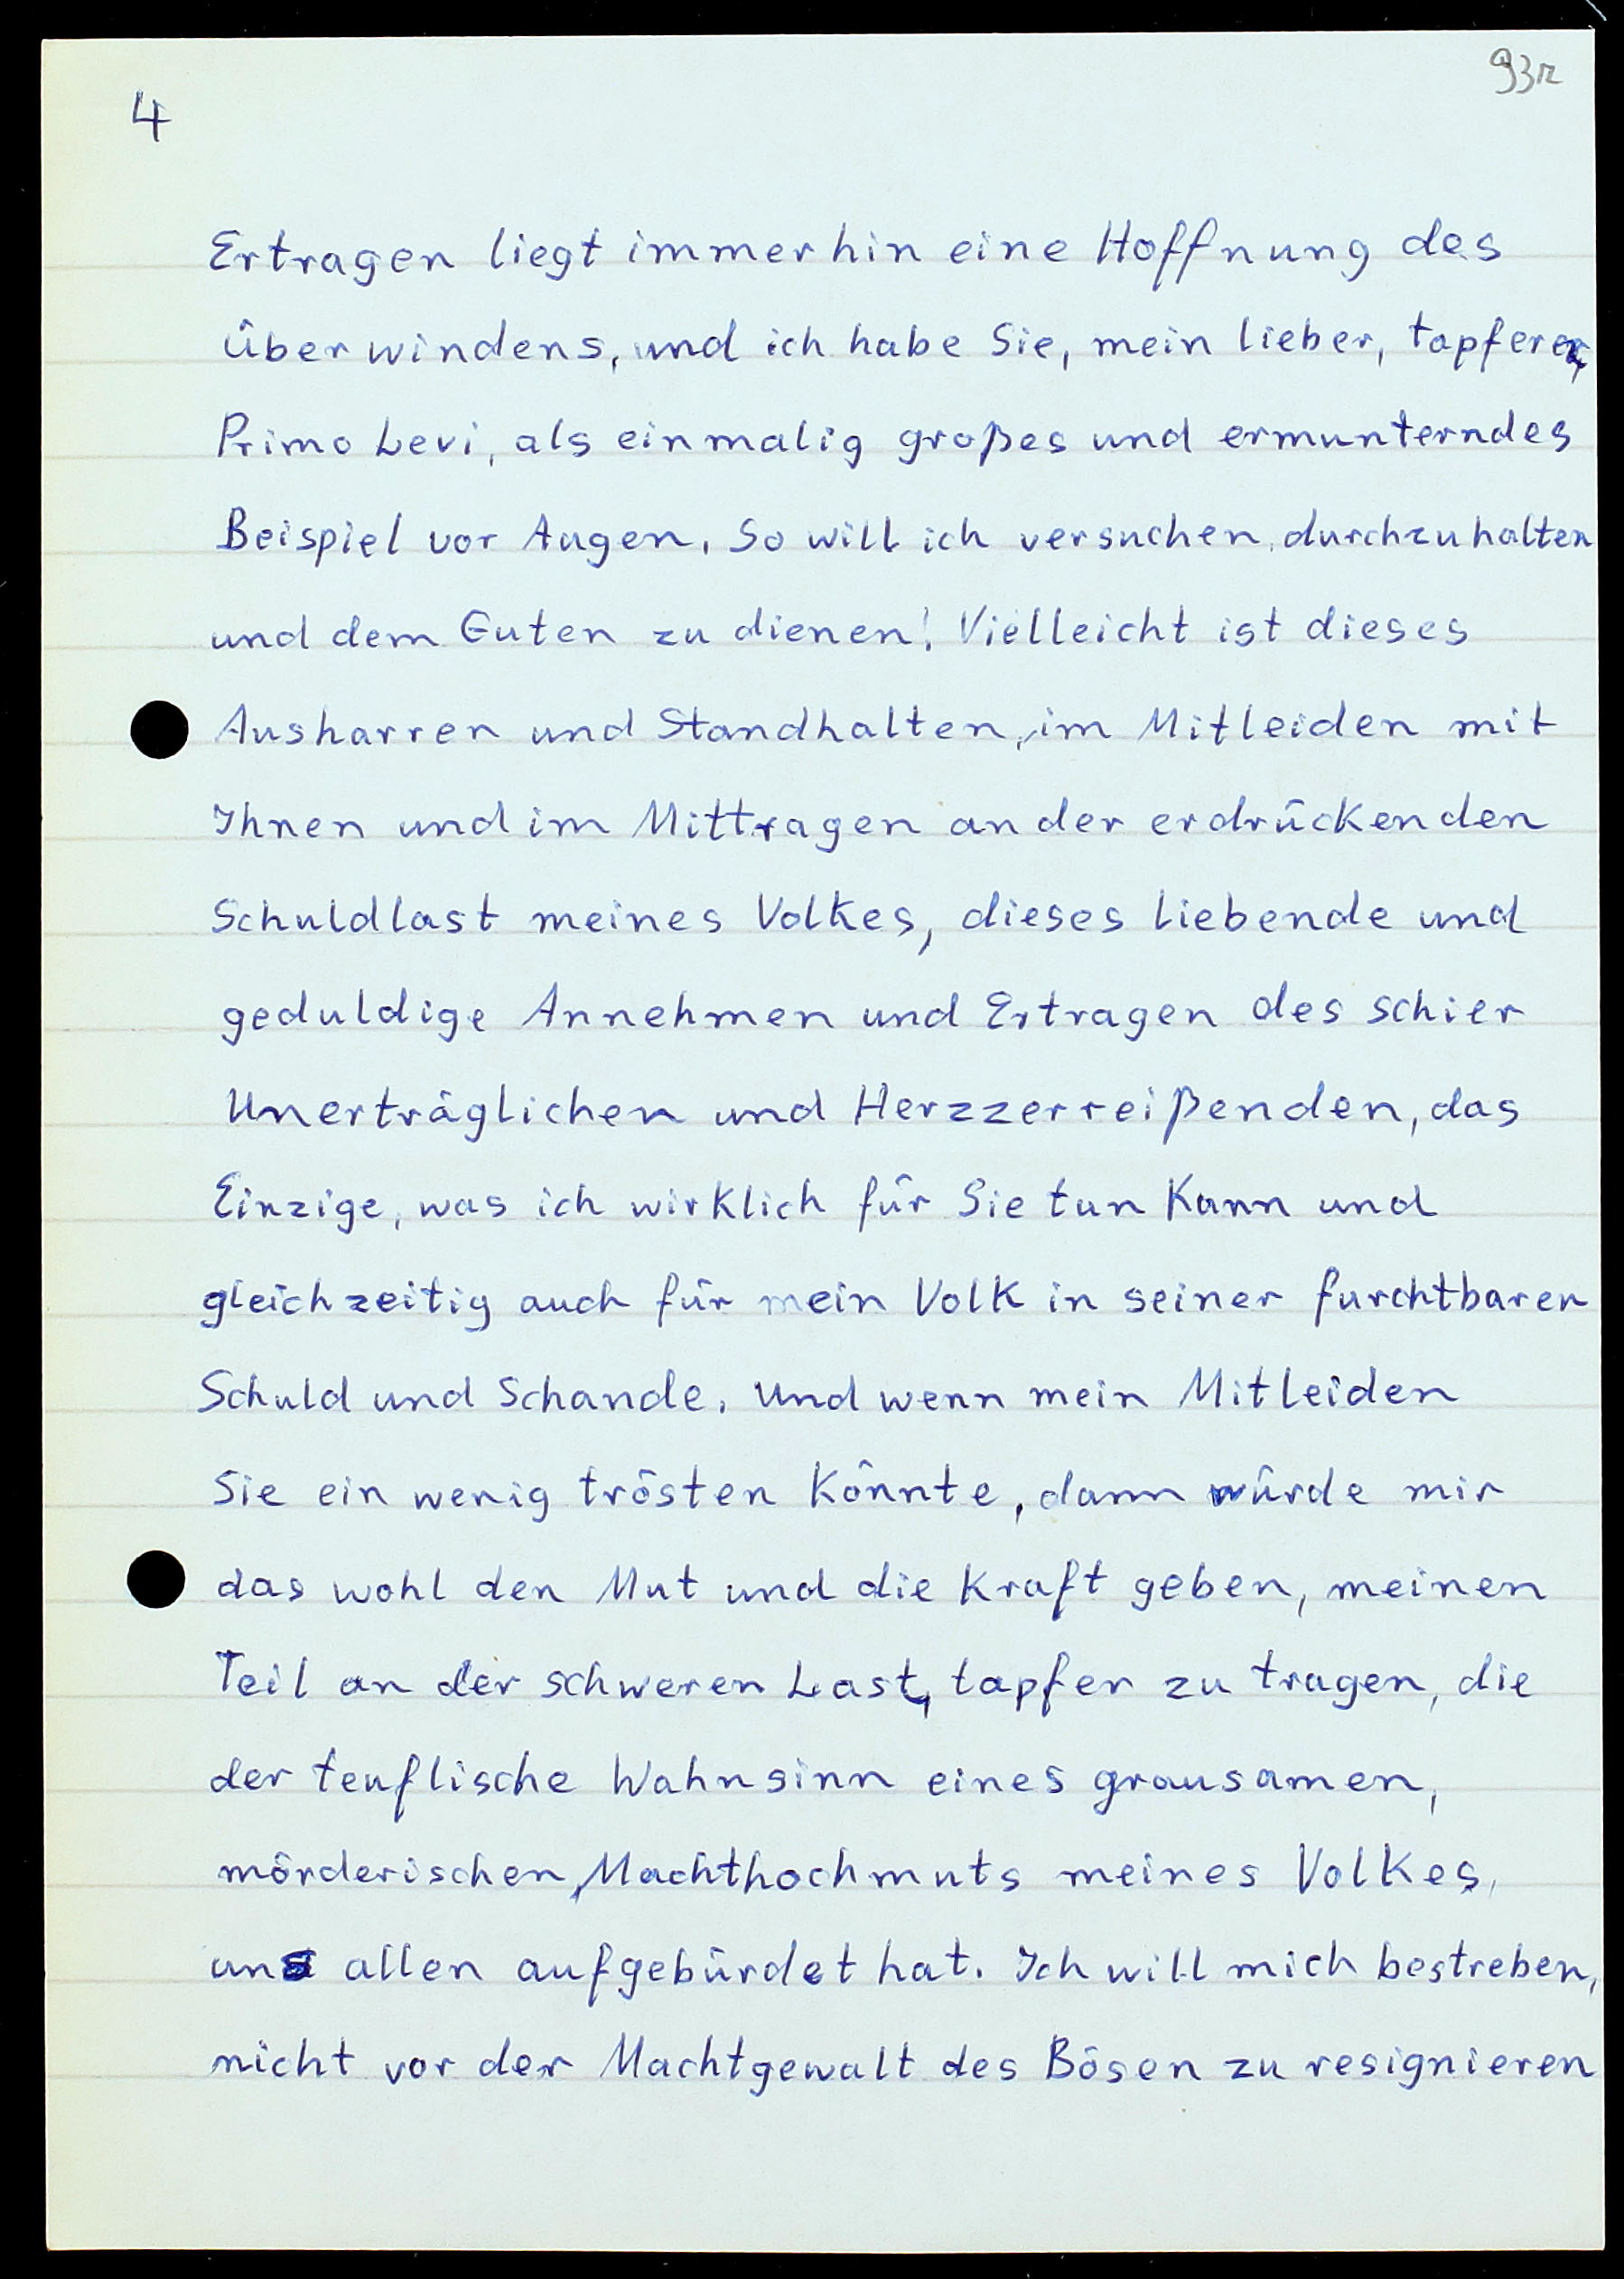 93r
4
Ertragen liegt immerhin eine Hoffnung des
Überwindens, und ich habe Sie, mein lieber, tapferer,
Primo Levi, als einmalig großes und ermunterndes
Beispiel vor Augen. So will ich versuchen, durchzuhalten
und dem Guten zu dienen! Vielleicht ist dieses
Ausharren und Standhalten, im Mitleiden mit
Ihnen und im Mittragen an der erdrückenden
Schuldlast meines Volkes, dieses liebende und
geduldige Annehmen und Ertragen des schier
Unerträglichen und Herzzerreißenden, das
Einzige, was ich wirklich für Sie tun kann und
gleichzeitig auch für mein Volk in seiner furchtbaren
Schuld und Schande. Und wenn mein Mitleiden
Sie ein wenig trösten könnte, dann würde mir
das wohl den Mut und die Kraft geben, meinen
Teil an der schweren Last, tapfer zu tragen, die
der teuflische Wahnsinn eines grausamen,
mörderischen, Machthochmuts meines Volkes,
uns allen aufgebürdet hat. Ich will mich bestreben,
nicht vor der Machtgewalt des Bösen zu resignieren